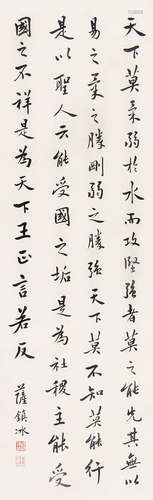 天下莫柔弱於水而攻堅強者莫之能先其無以
易之柔之勝剛弱之勝強天下莫不知莫能行
是以聖人云能受國之垢是為社稷主能受
國之不祥是為天下王正言若反
薩鎮冰